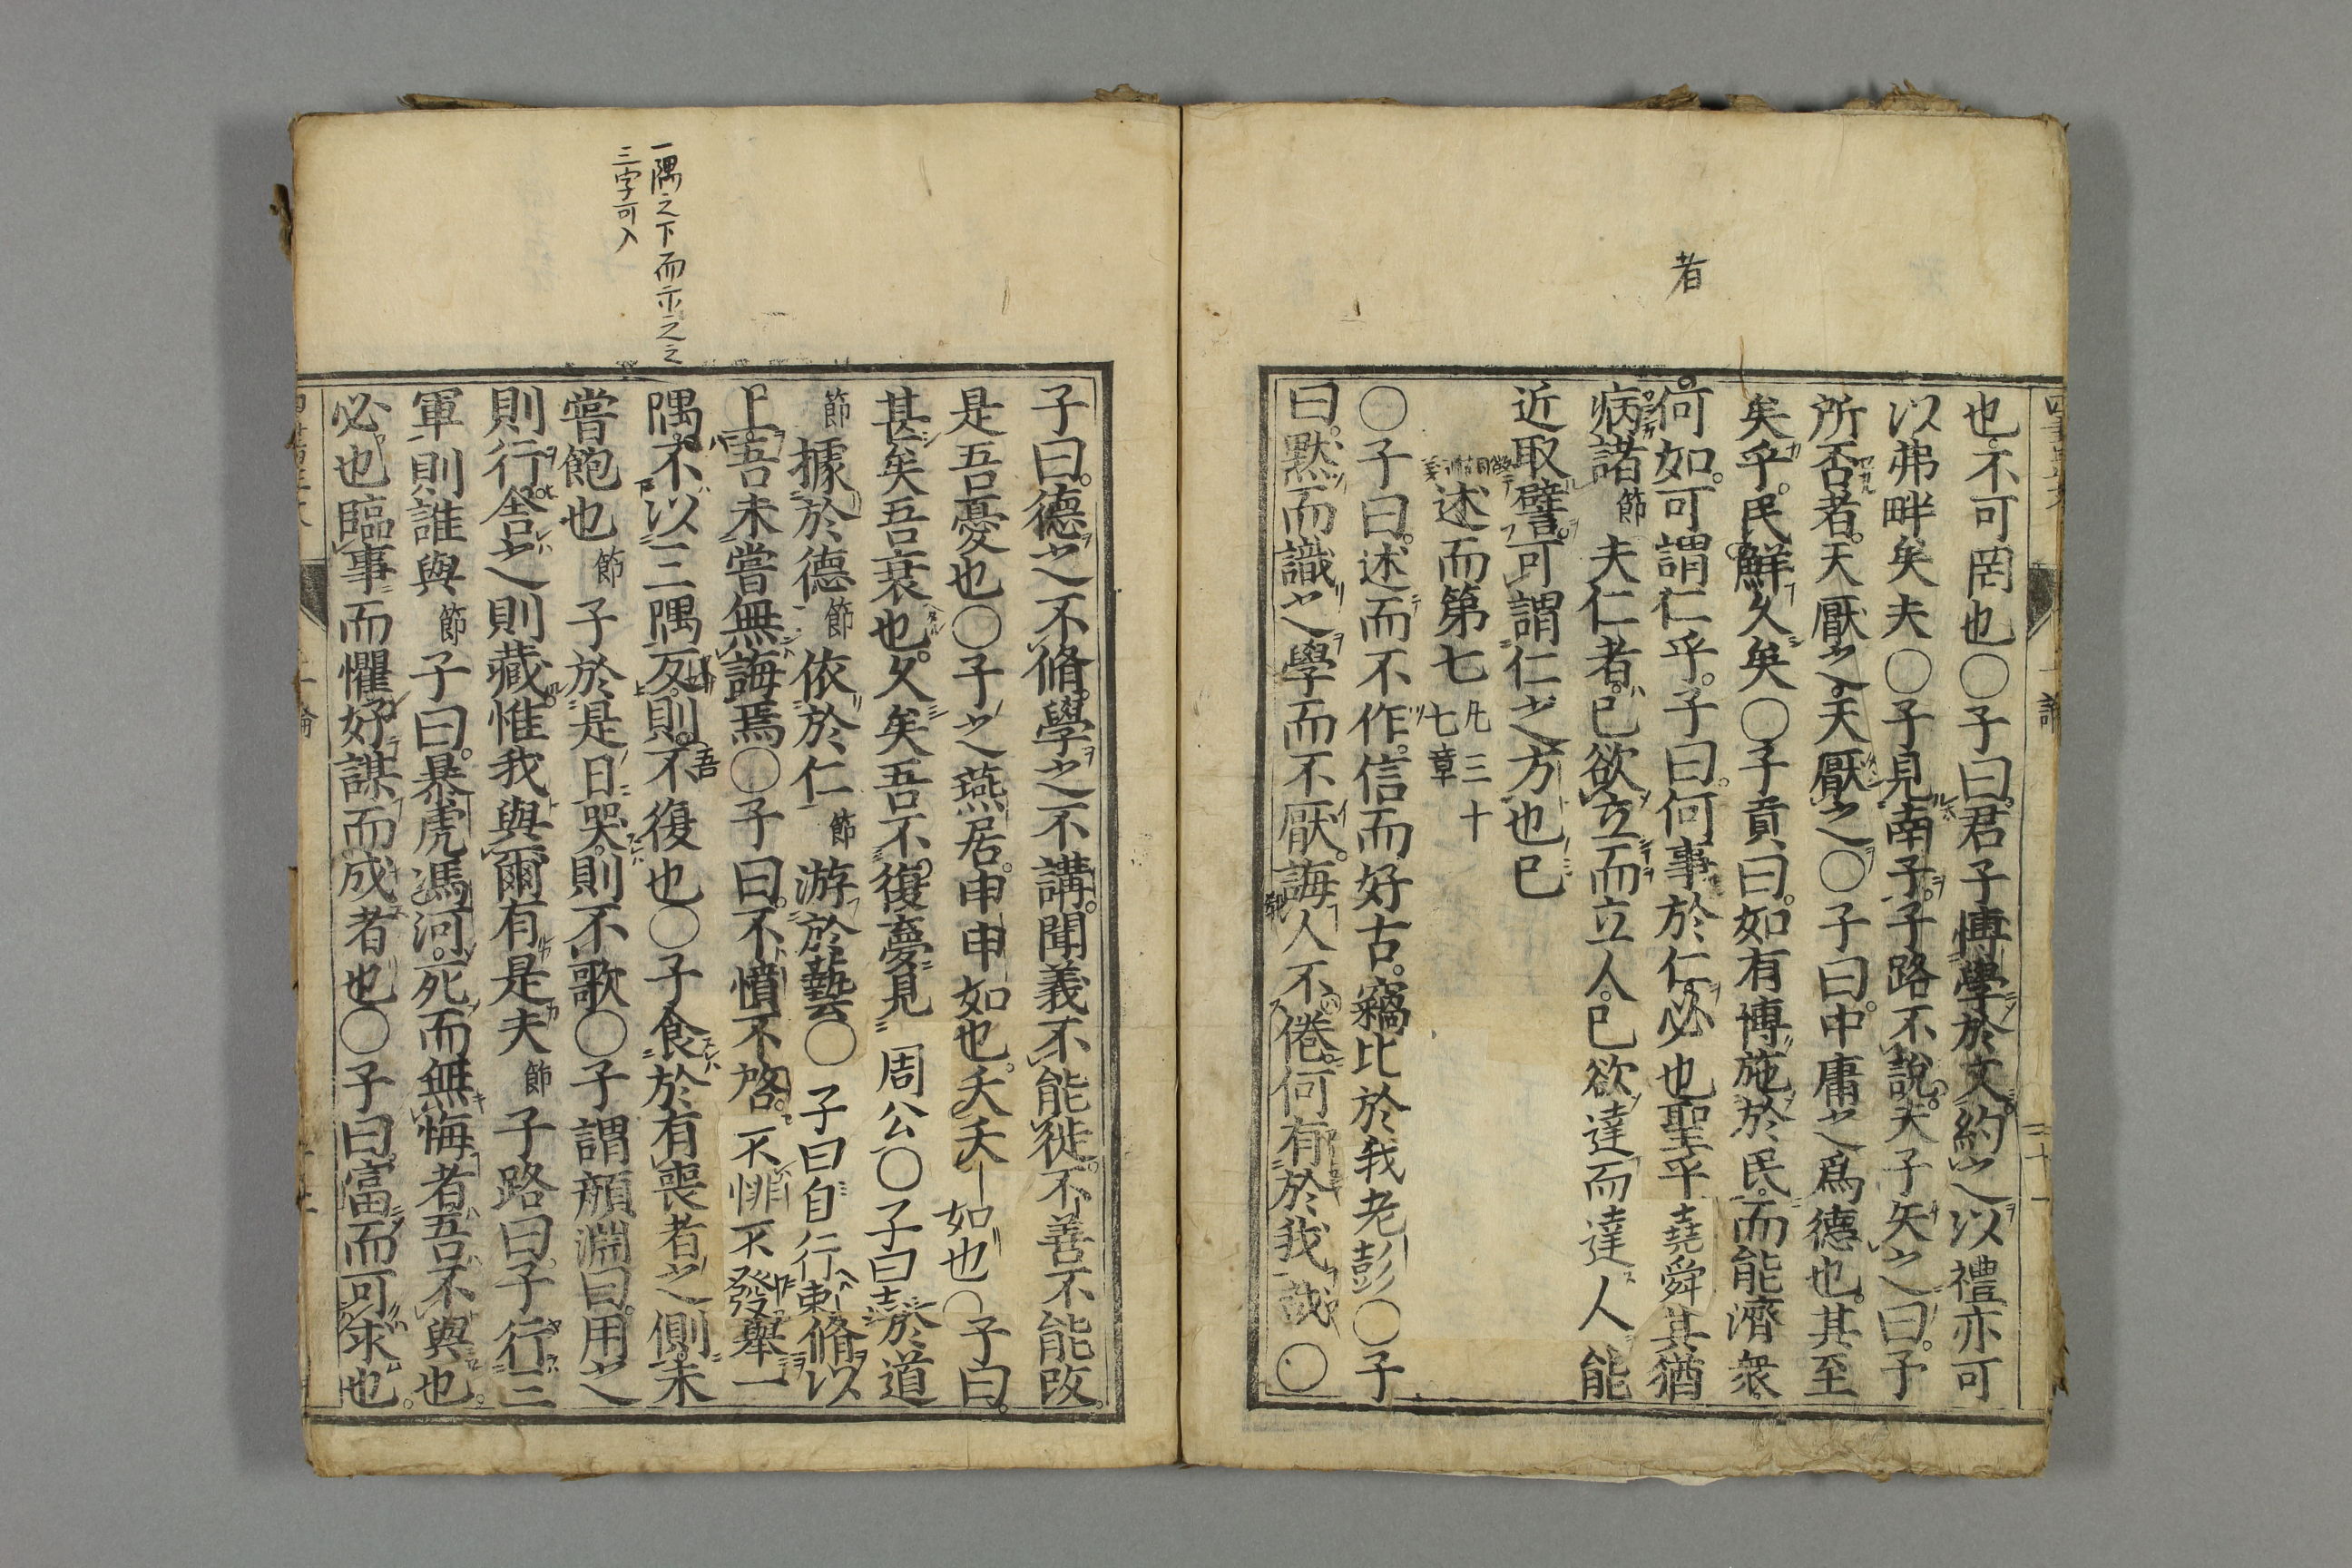 者
也不可罔也○子曰君子博學於文約之以禮亦可
以弗畔矣夫○子見南子子路不說夫子矢之曰予
所否者天厭之天厭之○子曰中庸之爲德也其至
矣乎民鮮久矣○子貢曰如有博施於民而能濟衆
何如可謂仁乎子曰何事於仁必也聖乎堯舜其猶
病諸節夫仁者己欲立而立人己欲達而達人能
近取譬可謂仁之方也已
述而第七凡三十七章
○子曰述而不作信而好古竊比於我老彭○子
曰默而識之學而不厭誨人不倦何有於我哉○
一隅之下而示之之
三字可入
子曰德之不脩學之不講聞義不能徙不善不能改
是吾憂也○子之燕居申申如也夭夭如也○子曰
甚矣吾衰也久矣吾不復夢見周公○子曰志於道
節據於德節依於仁節游於藝○子曰自行束脩以
上吾未嘗無誨焉○子曰不憤不啓不悱不發舉一
隅不以三隅反則吾不復也○子食於有喪者之側未
嘗飽也節子於是日哭則不歌○子謂顏淵曰用之
則行舍之則藏惟我與爾有是夫節子路曰子行三
軍則誰與節子曰暴虎馮河死而無悔者吾不與也
必也臨事而懼好謀而成者也○子曰富而可求也